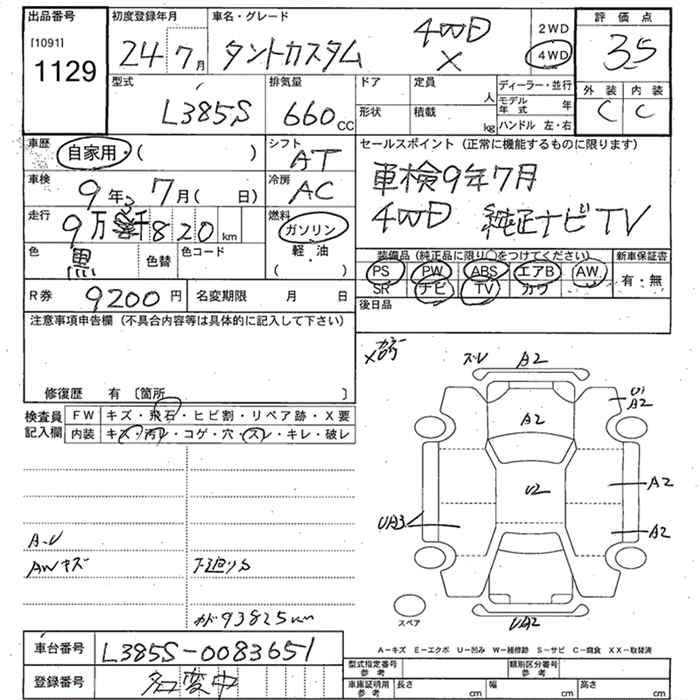 出品番号 初度登録年月 車名・グレード 評価点
[1091] 1129 24 7月 タントカスタム 4WD X 2WD 4WD 35
型式 L385S 排気量 660 CC ドア 形状 定員 人 積載 kg ディーラー・並行 モデル年式 年 ハンドル 左・右 外装 C 内装 C
車歴 自家用・( ) シフト AT セールスポイント (正常に機能するものに限ります)
車検 9年 7月( 日) 冷房 AC 車検9年7月
走行 9万 820 km 燃料 ガソリン 4WD 純正ナビ TV
色 黒 色替 色コード 軽・油 ( )
装備品 (純正品に限り○をつけてください) 新車保証書
PS PW ABS エアB AW 有・無
SR ナビ TV カワ
R券 9200円 名変期限 月 日 後日品
注意事項申告欄 (不具合内容等は具体的に記入して下さい)
修復歴 有 〔箇所 〕
検査員記入欄 FW キズ・飛石・ヒビ割・リペア跡・X要
内装 キズ・汚レ・コゲ・穴・スレ・キレ・破レ
ズレ A2
A2 A2
U2 A2
UA3 A2
UA2
A-U
AWキズ 下廻りS
93825km
スペア
A−キズ E−エクボ U−凹み W−補修跡 S−サビ C−腐食 XX−取替済
車台番号 L385S-0083651
登録番号 名変中
型式指定番号 参考 類別区分番号 参考
車庫証明用 参考 長さ cm 幅 cm 高さ cm